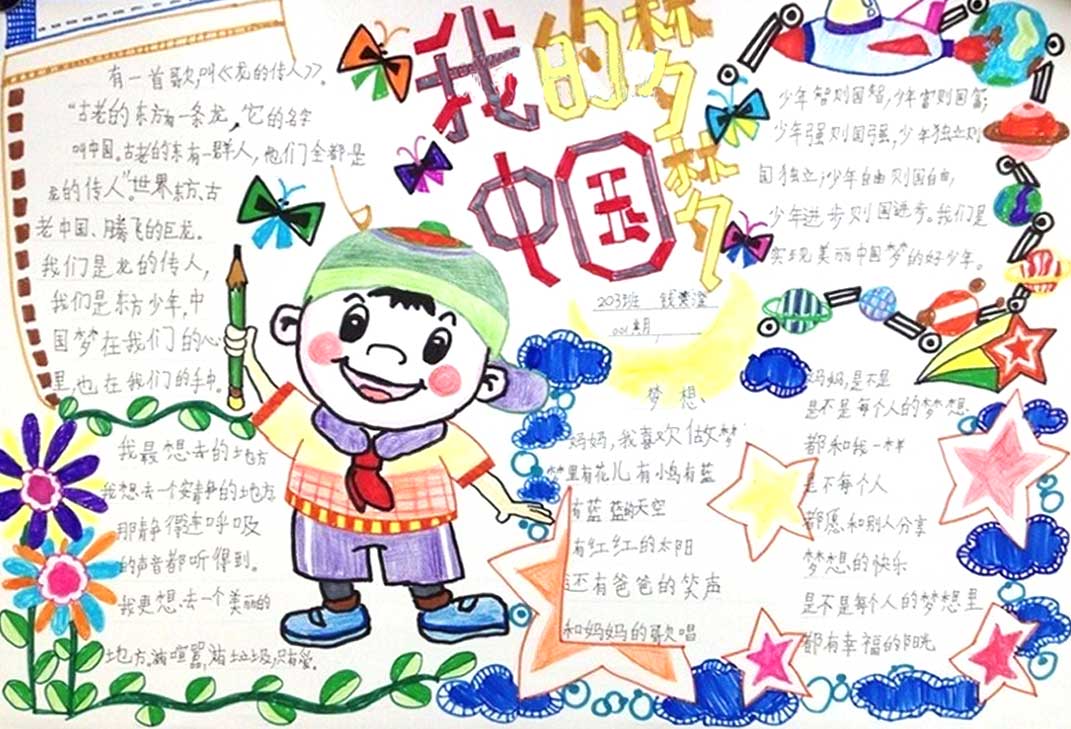 我的梦
中国梦
有一首歌叫《龙的传人》。
"古老的东方有一条龙,它的名字
叫中国。古老的东有一群人,他们全都是
龙的传人"。世界东方、古
老中国、腾飞的巨龙。
我们是龙的传人,
我们是东方少年,中
国梦在我们的心
里,也在我们的手中。
我最想去的地方
我想去一个安静的地方
那静得连呼吸
的声音都听得到。
我更想去一个美丽的
地方。没有喧嚣,没有垃圾,只有爱。
203班
少年智则国智,少年富则国富;
少年强则国强,少年独立则
国独立;少年自由则国自由,
少年进步则国进步。我们是
实现美丽中国梦的好少年。
梦想、
妈妈,我喜欢做梦
梦里有花儿有小鸟有蓝
有蓝蓝的天空
有红红的太阳
还有爸爸的笑声
和妈妈的歌唱
妈妈,是不是
是不是每个人的梦想
都和我一样
是不每个人
都愿和别人分享
梦想的快乐
是不是每个人的梦想里
都有幸福的阳光